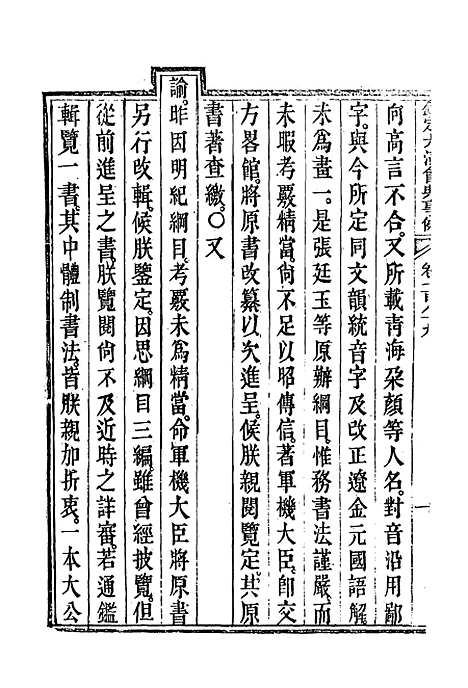 向高言不合。又所載青海朶顏等人名。對音沿用鄙
字。與今所定同文韻統音字及改正遼金元國語解
未爲畫一。是張廷玉等原辦綱目。惟務書法謹嚴。而
未暇考覈精當。尚不足以昭傳信。著軍機大臣。卽交
方畧館。將原書改纂以次進呈。候朕親閱覽定。其原
書著查繳。○又
諭。昨因明紀綱目。考覈未爲精當。命軍機大臣將原書
另行改輯。候朕鑒定。因思綱目三編。雖曾經披覽。但
從前進呈之書。朕覽閱尙不及近時之詳審。若通鑑
輯覽一書。其中體制書法。皆朕親加折衷。一本大公